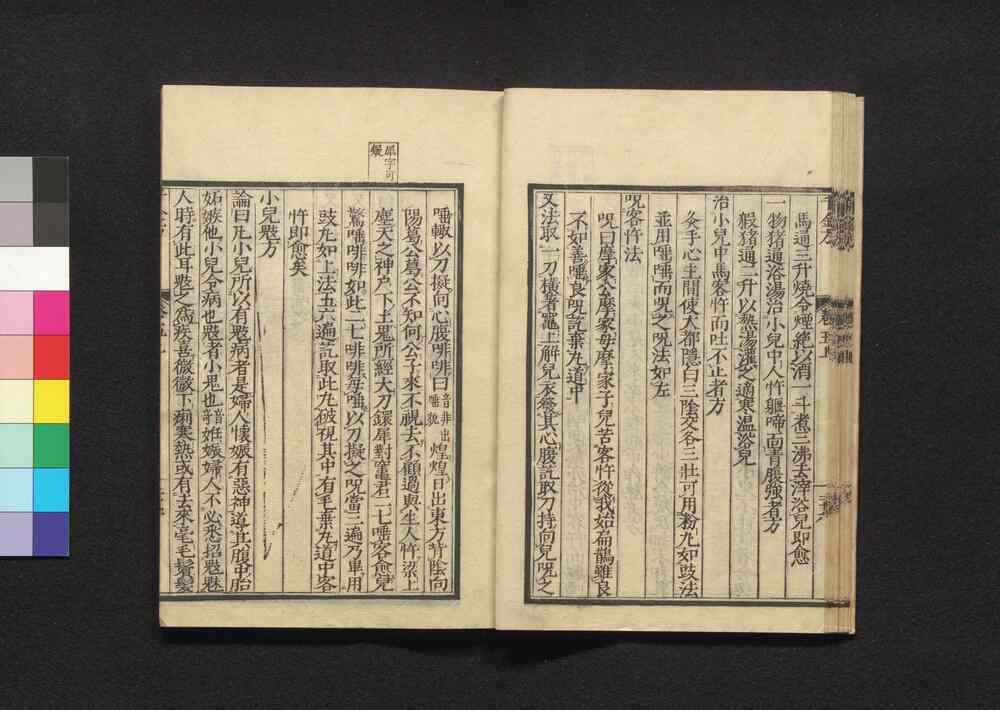 馬通三升燒令煙絕以酒一斗煮三沸去滓浴兒即愈
一物猪通浴湯治小兒中人忤躽啼面青腹強者方
豭猪通二升以熱湯灌之適寒温浴兒
治小兒中馬客忤而吐不止者方
灸手心主間使大都隱白三陰交各三壯可用粉丸如豉法
並用唾唾而呪之呪法如左
呪客忤法
呪曰摩家公摩家母摩家子兒苦客忤從我始扁鵲雖良
不如善唾良呪訖棄丸道中
又法取一刀橫著竈上解兒衣發其心腹訖取刀持向兒呪之
唾輒以刀擬向心腹啡啡曰音非出唾貌煌煌日出東方背陰向
陽葛公葛公不知何公子來不視去不顧過與生人忤梁上
塵天之神戶下土鬼所經大刀鐶犀對竈君二七唾客愈兒
驚唾啡啡如此二七啡啡每唾以刀擬之呪當三遍乃畢用
豉丸如上法五六遍訖取此丸破視其中有毛棄丸道中客
忤即愈矣
小兒鬾方
論曰凡小兒所以有鬾病者是婦人懷娠有惡神導其腹中胎
妬嫉他小兒令病也鬾者小鬼也音奇妊娠婦人不必悉招魃魅
人時有此耳鬾之為疾喜微微下痢寒熱或有去來毫毛鬢髮